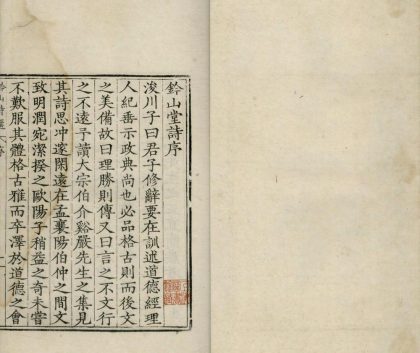 鈐山堂詩序
浚川子曰君子修辭要在訓述道德經理
人紀垂示政典尚也必品格古則而後文
之美備故曰理勝則傳又曰言之不文行
之不遠予讀大宗伯介谿嚴先生之集見
其詩思沖邃閑遠在孟襄陽伯仲之間文
致明潤宛潔揆之歐陽子稍益之奇未嘗
不歎服其體格古雅而卒澤於道德之會